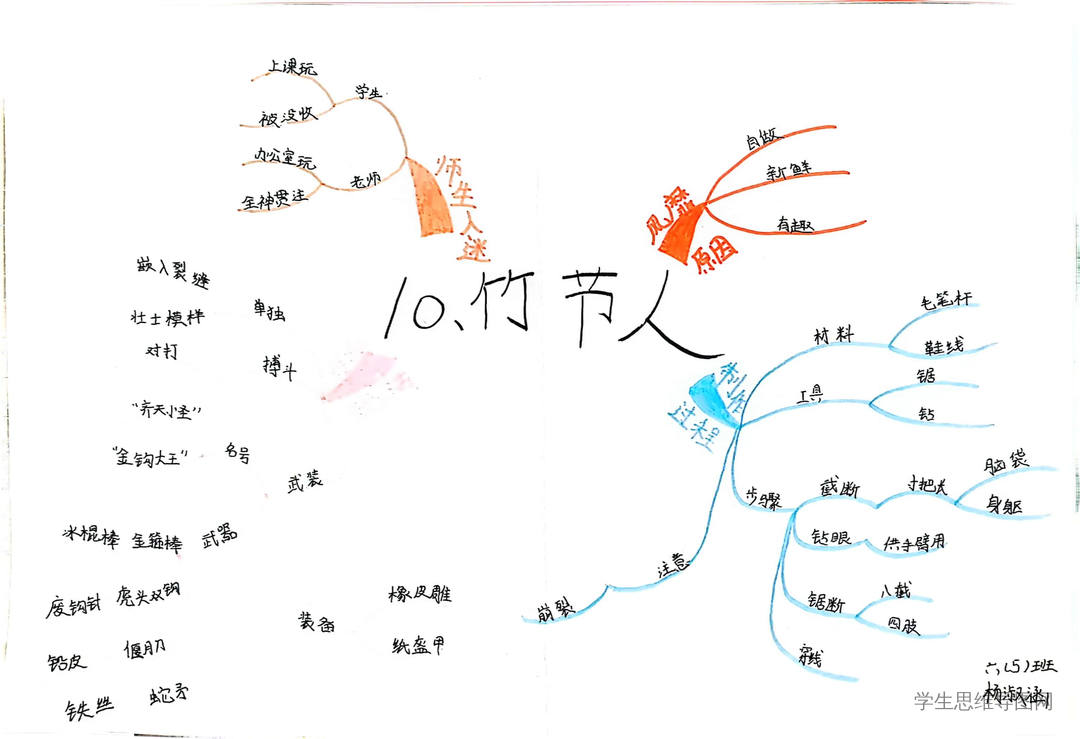 10、竹节人
师生入迷
学生
上课玩
被没收
老师
办公室玩
全神贯注
风靡
原因
自做
新鲜
有趣
制作
过程
材料
毛笔杆
鞋线
工具
锯
钻
步骤
截断
寸把长
脑袋
身躯
钻眼
供手臂用
锯断
八截
四肢
穿线
注意
崩裂
单独
嵌入裂缝
壮士模样
搏斗
对打
武装
名号
“齐天小圣”
“金钩大王”
武器
冰棍棒 金箍棒
废钩针 虎头双钩
铅皮 偃月刀
铁丝 蛇矛
装备
橡皮雕
纸盔甲
六(5)班
杨淑涵
学生思维导图网